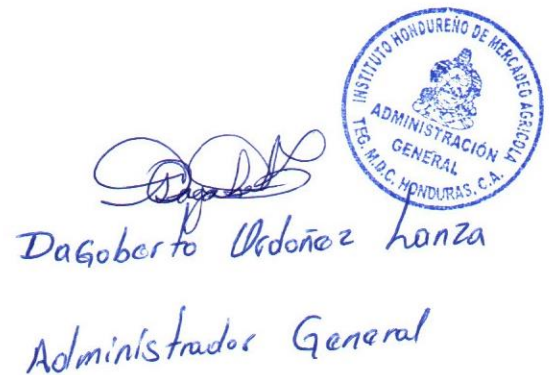 INSTITUTO HONDUREÑO DE MERCADEO AGRICOLA
ADMINISTRACIÓN
GENERAL
TEG. M.D.C. HONDURAS. C.A.
Dagoberto Ordoñez Lanza
Administrador General